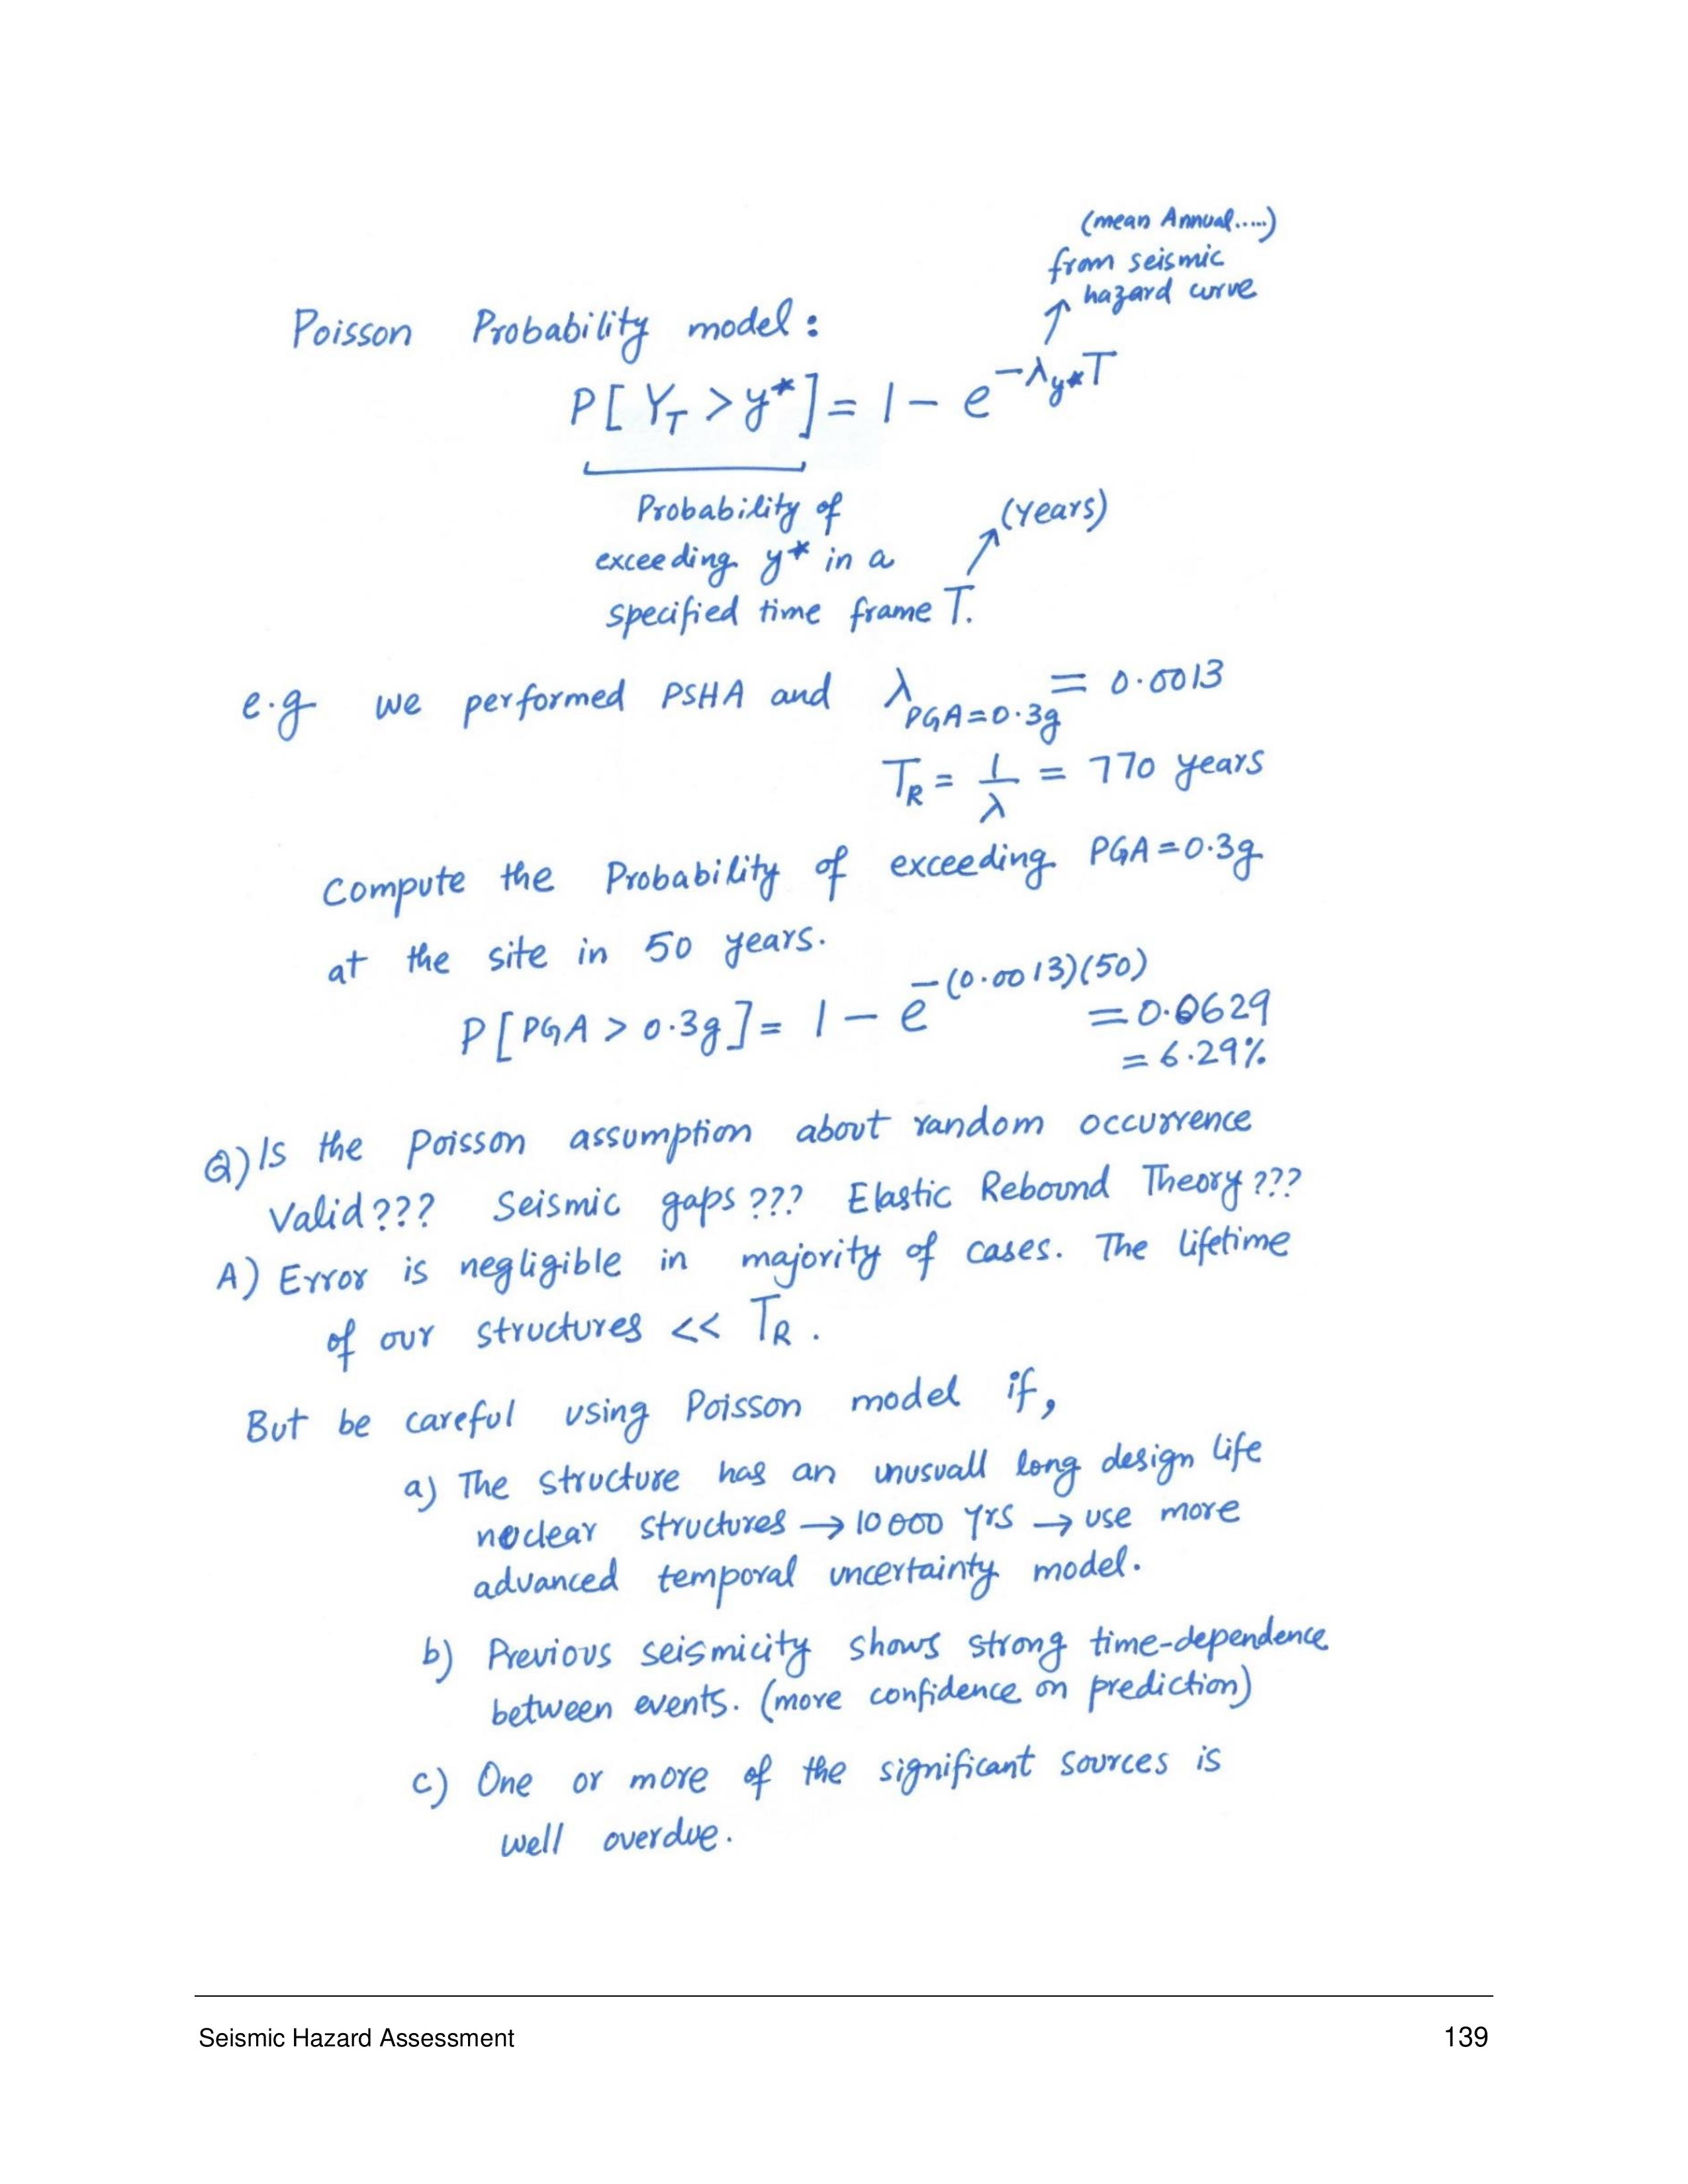 (mean Annual.....)
from seismic
hazard curve
Poisson Probability model:
P[Y_T > y*] = 1 - e^{-λ_{y*}T}
Probability of
exceeding y* in a
specified time frame T.
(years)
e.g we performed PSHA and λ_{PGA=0.3g} = 0.0013
T_R = 1/λ = 770 years
Compute the Probability of exceeding PGA=0.3g
at the site in 50 years.
P[PGA > 0.3g] = 1 - e^{-(0.0013)(50)} = 0.0629
= 6.29%
Q) Is the Poisson assumption about random occurrence
Valid??? Seismic gaps??? Elastic Rebound Theory???
A) Error is negligible in majority of cases. The lifetime
of our structures << T_R.
But be careful using Poisson model if,
a) The structure has an unusuall long design life
nuclear structures → 10000 yrs → use more
advanced temporal uncertainty model.
b) Previous seismicity shows strong time-dependence
between events. (more confidence on prediction)
c) One or more of the significant sources is
well overdue.
Seismic Hazard Assessment 139